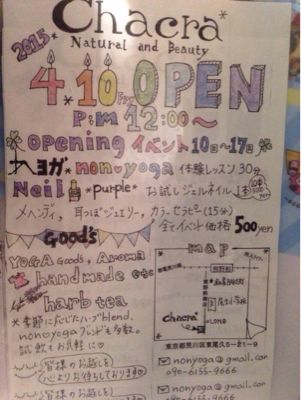 Chacra*
2015*
Natural and Beauty
4*10 Fri OPEN
P:M 12:00〜
opening イベント 10日〜17日
ヨガ* non*yoga 体験レッスン 30分
Neil *purple* お試しジェルネイル 1本
メヘンディ、耳つぼジュエリー、カラーセラピー(15分)
全イベント価格 500yen
Good's
YOGA Goods, Aroma
handmade etc
harb tea
*季節に応じたハーブblend.
non*yogaブレンドも多数。
試飲もお気軽に♡
皆様のお越しを
心よりお待ちしております
map
Chacra
東京都荒川区東尾久5-21-9
nonyoga@gmail.com
090-6155-9666
皆様のお越しを
nonyoga@gmail.com
090-6155-9666